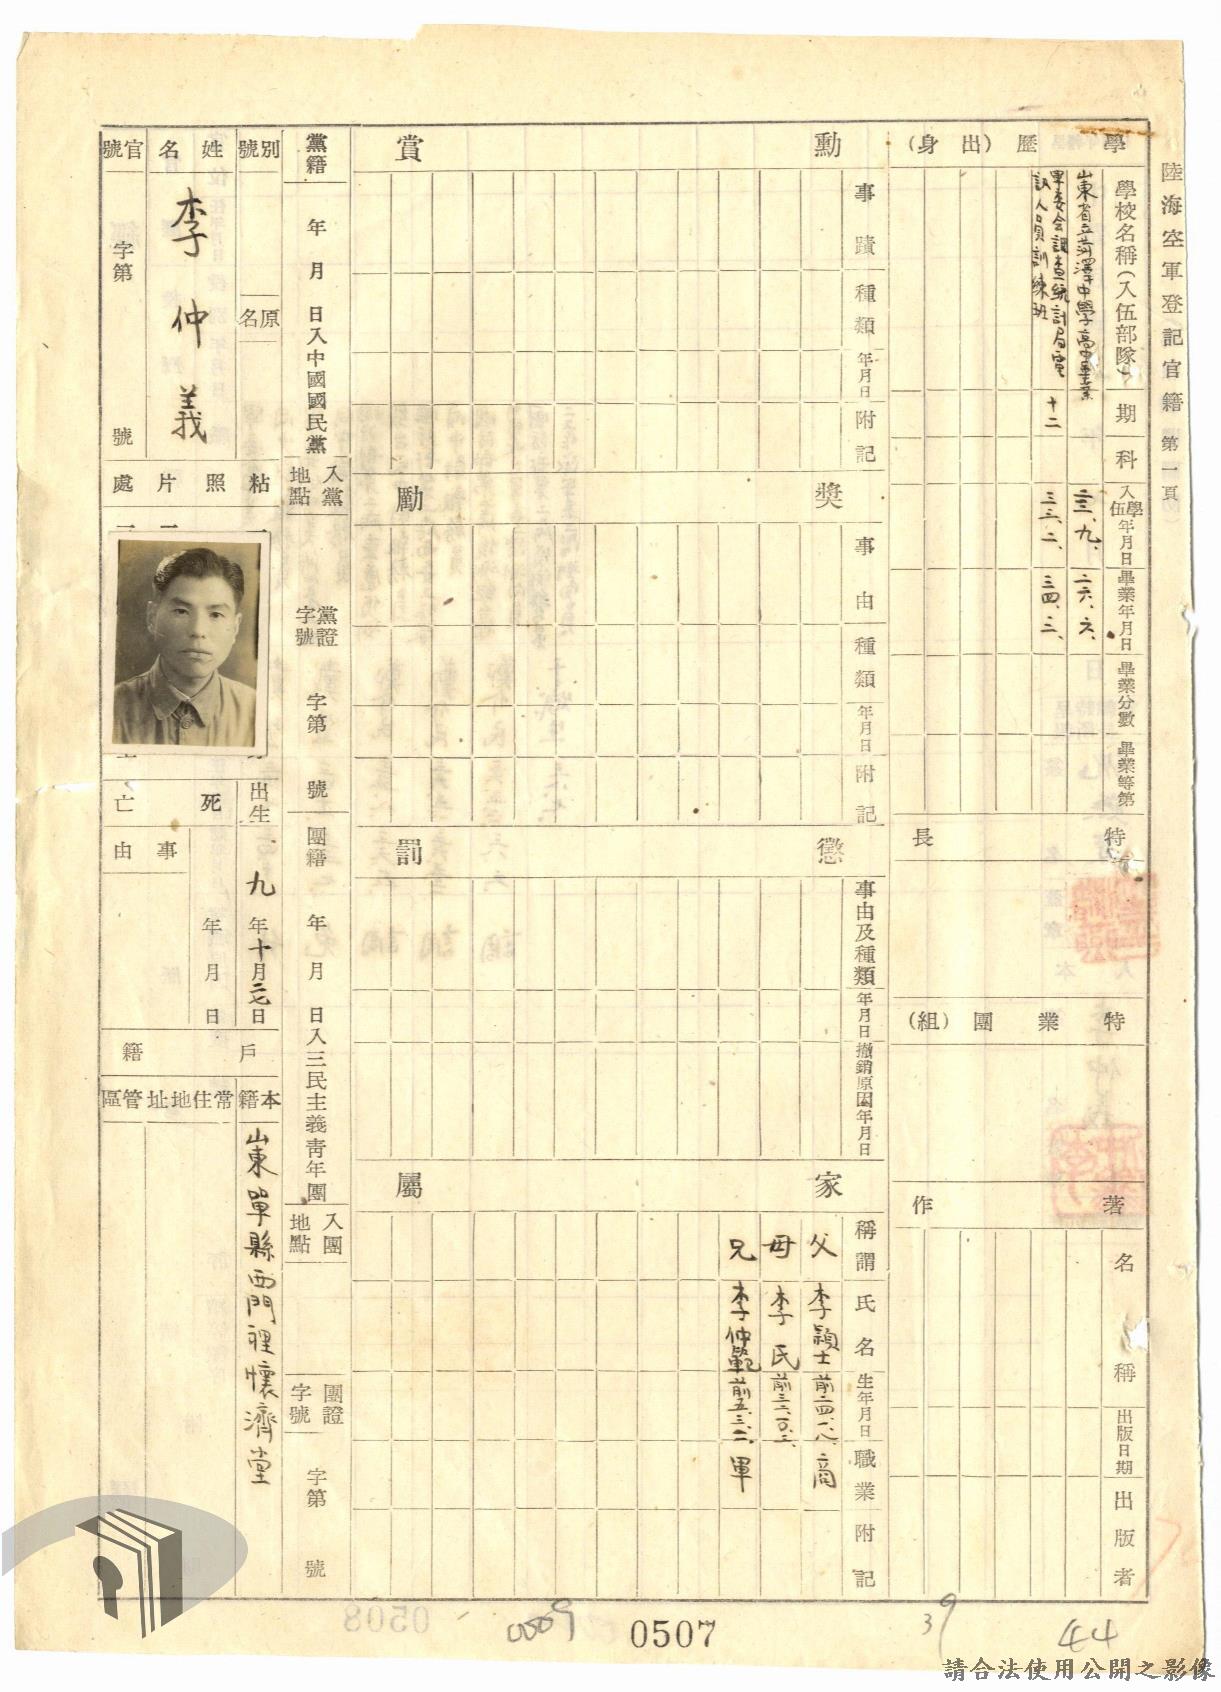 陸海空軍登記官籍 第一頁
學歷(出身)
學校名稱(入伍部隊)
期
科
入伍學年月日
畢業年月日
畢業分數
畢業等第
山東省立菏澤中學高中畢業
二三、九、
二六、六、
軍委會調查統計局電
訊人員訓練班
十二
三三、二、
三四、三、
特長
特業團(組)
著作
名稱
出版日期
出版者
勳賞
事蹟
種類
年月日
附記
獎勵
事由
種類
年月日
附記
懲罰
事由及種類
年月日
撤銷原因年月日
家屬
稱謂
氏名
生年月日
職業
附記
父 李穎士 前二四、一、八、 商
母 李氏
兄 李仲範 前五、三、二、 軍
黨籍
年月日入中國國民黨
入黨地點
黨證字號
字第 號
團籍
年月日入三民主義青年團
入團地點
團證字號
字第 號
別號
原名
姓名
李仲義
官號
字第 號
粘照片處
出生
九年十月二七日
死亡
年月日
事由
戶籍
本籍
山東單縣西門裡懷濟堂
常住地址
管區
0508
0009
0507
39
44
請合法使用公開之影像